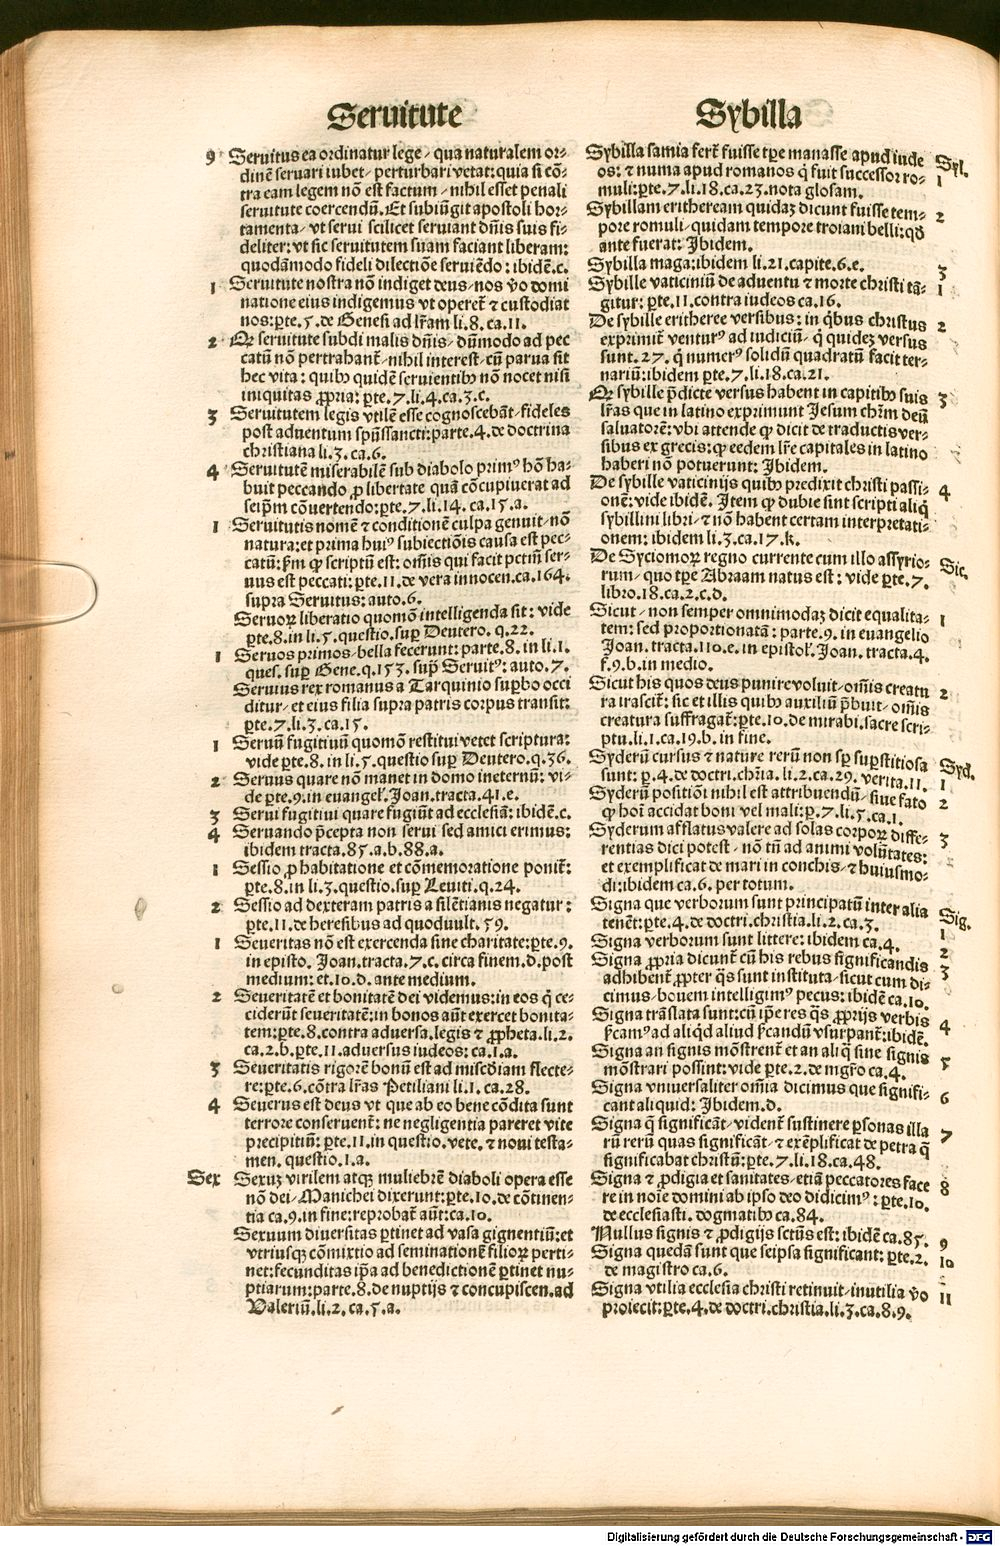 Seruitute
9 Seruitus ea ordinatur lege / qua naturalem or⸗
dinē seruari iubet / perturbari vetat: quia si cō⸗
tra eam legem nō est factum / nihil esset penali
seruitute coercendū. Et subiūgit apostoli hor⸗
tamenta / vt serui scilicet seruiant dn̄is suis fi⸗
deliter: vt sic seruitutem suam faciant liberam:
quodāmodo fideli dilectiōe seruiēdo: ibidē.c.
1 Seruitute nostra nō indiget deus / nos v̄o domi
natione eius indigemus vt operet̄ ⁊ custodiat
nos: ꝑte.5. de Genesi ad lr̄am li.8. ca.11.
2 Qꝛ seruitute subdi malis dn̄is / dūmodo ad pec
catū nō pertrahant̄ / nihil interest / cū parua sit
hec vita: quibꝰ quidē seruientibꝰ nō nocet nisi
iniquitas ꝓpria: ꝑte.7.li.4.ca.3.c.
3 Seruitutem legis vtilē esse cognoscebāt fideles
post aduentum sp̄ussancti: parte.4. de doctrina
christiana li.3. ca.6.
4 Seruitutē miserabilē sub diabolo primꝰ hō ha⸗
buit peccando / ꝓ libertate quā cōcupiuerat ad
seip̄m cōuertendo: ꝑte.7.li.14. ca.15.a.
1 Seruitutis nomē ⁊ conditionē culpa genuit / nō
natura: et prima huiꝰ subiectiōis causa est pec⸗
catū: ꝓm ꝙ scriptū est: om̄is qui facit pctm̄ ser⸗
uus est peccati: ꝑte.11. de vera innocen.ca.164.
supra Seruitus: auto.6.
Seruoꝝ liberatio quomō intelligenda sit: vide
ꝑte.8. in li.5. questio. suꝑ Deutero. q.22.
1 Seruos primos / bella fecerunt: parte.8. in li.1.
ques. suꝑ Gene.q.153. sup̄ Seruitꝰ: auto.7.
Seruius rex romanus a Tarquinio suꝑbo occi
ditur / et eius filia supra patris corpus transit:
ꝑte.7.li.3.ca.15.
1 Seruū fugitiuū quomō restitui vetet scriptura:
vide ꝑte.8. in li.5. questio suꝑ Deutero. q.36.
2 Seruus quare nō manet in domo ineternū: vi⸗
de ꝑte.9. in euangel̄. Joan. tracta.41.e.
3 Serui fugitiui quare fugiūt ad ecclesiā: ibidē.c.
4 Seruando p̄cepta non serui sed amici erimus:
ibidem tracta.85.a.b.88.a.
1 Sessio ꝓ habitatione et cōmemoratione ponit̄:
ꝑte.8. in li.3. questio. suꝑ Leuiti. q.24.
2 Sessio ad dexteram patris a silētianis negatur:
ꝑte.11. de heresibus ad quoduult.59.
1 Seueritas nō est exercenda sine charitate: ꝑte.9.
in episto. Joan. tracta.7.c. circa finem.d. post
medium: et.10.d. ante medium.
2 Seueritatē et bonitatē dei videmus: in eos q̄ ce⸗
ciderūt seueritatē: in bonos aūt exercet bonita⸗
tem: ꝑte.8. contra aduersa. legis ⁊ ꝓpheta.li.2.
ca.2.b. ꝑte.11. aduersus iudeos: ca.1.a.
3 Seueritatis rigorē bonū est ad mis̄c̄diam flecte⸗
re: ꝑte.6. cōtra lr̄as Petiliani li.1. ca.28.
4 Seuerus est deus vt que ab eo bene cōdita sunt
terrore conseruent̄: ne negligentia pareret vite
precipitiū: ꝑte.11. in questio. vete. ⁊ noui testa⸗
men. questio.1.a.
Sex Sexuȝ virilem atqȝ muliebrē diaboli opera esse
nō dei / Manichei dixerunt: ꝑte.10. de cōtinen⸗
tia ca.9. in fine: reprobat̄ aūt: ca.10.
Sexuum diuersitas ꝑtinet ad vasa gignentiū: et
vtriusqȝ cōmixtio ad seminationē filioꝝ perti⸗
net: fecunditas ip̄a ad benedictionē ꝑtinet nu⸗
ptiarum: parte.8. de nuptijs ⁊ concupiscen. ad
Valeriū.li.2. ca.5.a.
Sybilla
Syl.
Sybilla samia fert̄ fuisse tꝑe manasse apud iude 1
os: ⁊ numa apud romanos q̄ fuit successor ro⸗
muli: ꝑte.7.li.18.ca.23. nota glosam.
Sybillam eritheream quidaȝ dicunt fuisse tem⸗ 2
pore romuli / quidam tempore troiani belli: qd̄
ante fuerat: Ibidem.
Sybilla maga: ibidem li.21. capite.6.e. 3
Sybille vaticiniū de aduentu ⁊ morte christi tā⸗ 1
gitur: ꝑte.11. contra iudeos ca.16.
De sybille eritheree versibus: in q̄bus christus 2
exprimit̄ venturꝰ ad iudiciū / q̄ quideȝ versus
sunt.27. q̄ numerꝰ solidū quadratū facit ter⸗
nariū: ibidem ꝑte.7.li.18.ca.21.
Qꝛ sybille p̄dicte versus habent in capitibꝰ suis 3
lr̄as que in latino exprimunt Jesum chr̄m deū
saluatorē: vbi attende ꝙ dicit de traductis ver⸗
sibus ex grecis: ꝙ eedem lr̄e capitales in latino
haberi nō potuerunt: Ibidem.
De sybille vaticinijs quibꝰ predixit christi passi⸗ 4
onē: vide ibidē. Item ꝙ dubie sint scripti aliq̄
sybillini libri / ⁊ nō habent certam interpretati⸗
onem: ibidem li.3.ca.17.k.
De Syciomoꝝ regno currente cum illo assyrio⸗ Sic.
rum / quo tꝑe Abraam natus est: vide ꝑte.7.
libro.18.ca.2.c.d.
Sicut / non semper omnimodaȝ dicit equalita⸗ 1
tem: sed proportionatā: parte.9. in euangelio
Joan. tracta.110.e. in epistol̄. Joan. tracta.4.
f.9.b. in medio.
Sicut his quos deus punire voluit / om̄is creatu 2
ra irascit̄: sic et illis quibꝰ auxiliū p̄buit / om̄is
creatura suffragat̄: ꝑte.10. de mirabi. sacre scri⸗
ptu.li.1.ca.19.b. in fine.
Syderū cursus ⁊ nature rerū non sꝑ suꝑstitiosa Syd.
sunt: ꝑ.4. de doctri. chr̄ia. li.2. ca.29. verita.11. 1
Syderū positiōi nihil est attribuendū / siue fato 2
ꝙ hoī accidat boni vel mali: ꝑ.7.li.5.ca.1.
Syderum afflatus valere ad solas corpoꝝ diffe⸗ 3
rentias dici potest / nō tn̄ ad animi volūtates:
et exemplificat de mari in conchis / ⁊ huiusmo⸗
di: ibidem ca.6. per totum.
Signa que verborum sunt principatū inter alia Sig.
tenēt: ꝑte.4. de doctri. christia.li.2.ca.3. 1
Signa verborum sunt littere: ibidem ca.4. 2
Signa ꝓpria dicunt̄ cū his rebus significandis 3
adhibent̄ ꝓpter q̄s sunt instituta / sicut cum di⸗
cimus / bouem intelligimꝰ pecus: ibidē ca.10.
Signa trāslata sunt: cū ip̄e res q̄s ꝓprijs verbis 4
s̄camꝰ ad aliq̄d aliud s̄candū vsurpant̄: ibidē.
Signa an signis mōstrent̄ et an aliq̄ sine signis 5
mōstrari possint: vide ꝑte.2. de mgr̄o ca.4.
Signa vniuersaliter om̄ia dicimus que signifi⸗ 6
cant aliquid: Ibidem.d.
Signa q̄ significāt / vident̄ sustinere ꝑsonas illa 7
rū rerū quas significāt / ⁊ exēplificat de petra q̄
significabat christū: ꝑte.7.li.18.ca.48.
Signa ⁊ ꝓdigia et sanitates / etiā peccatores face 8
re in noīe domini ab ipso deo didicimꝰ: ꝑte.10.
de ecclesiasti. dogmatibꝰ ca.84.
Nullus signis ⁊ ꝓdigijs sctūs est: ibidē ca.85. 9
Signa quedā sunt que seipsa significant: ꝑte.2. 10
de magistro ca.6.
Signa vtilia ecclesia christi retinuit / inutilia v̄o 11
proiecit: ꝑte.4. de doctri. christia.li.3.ca.8.9.
Digitalisierung gefördert durch die Deutsche Forschungsgemeinschaft - DFG